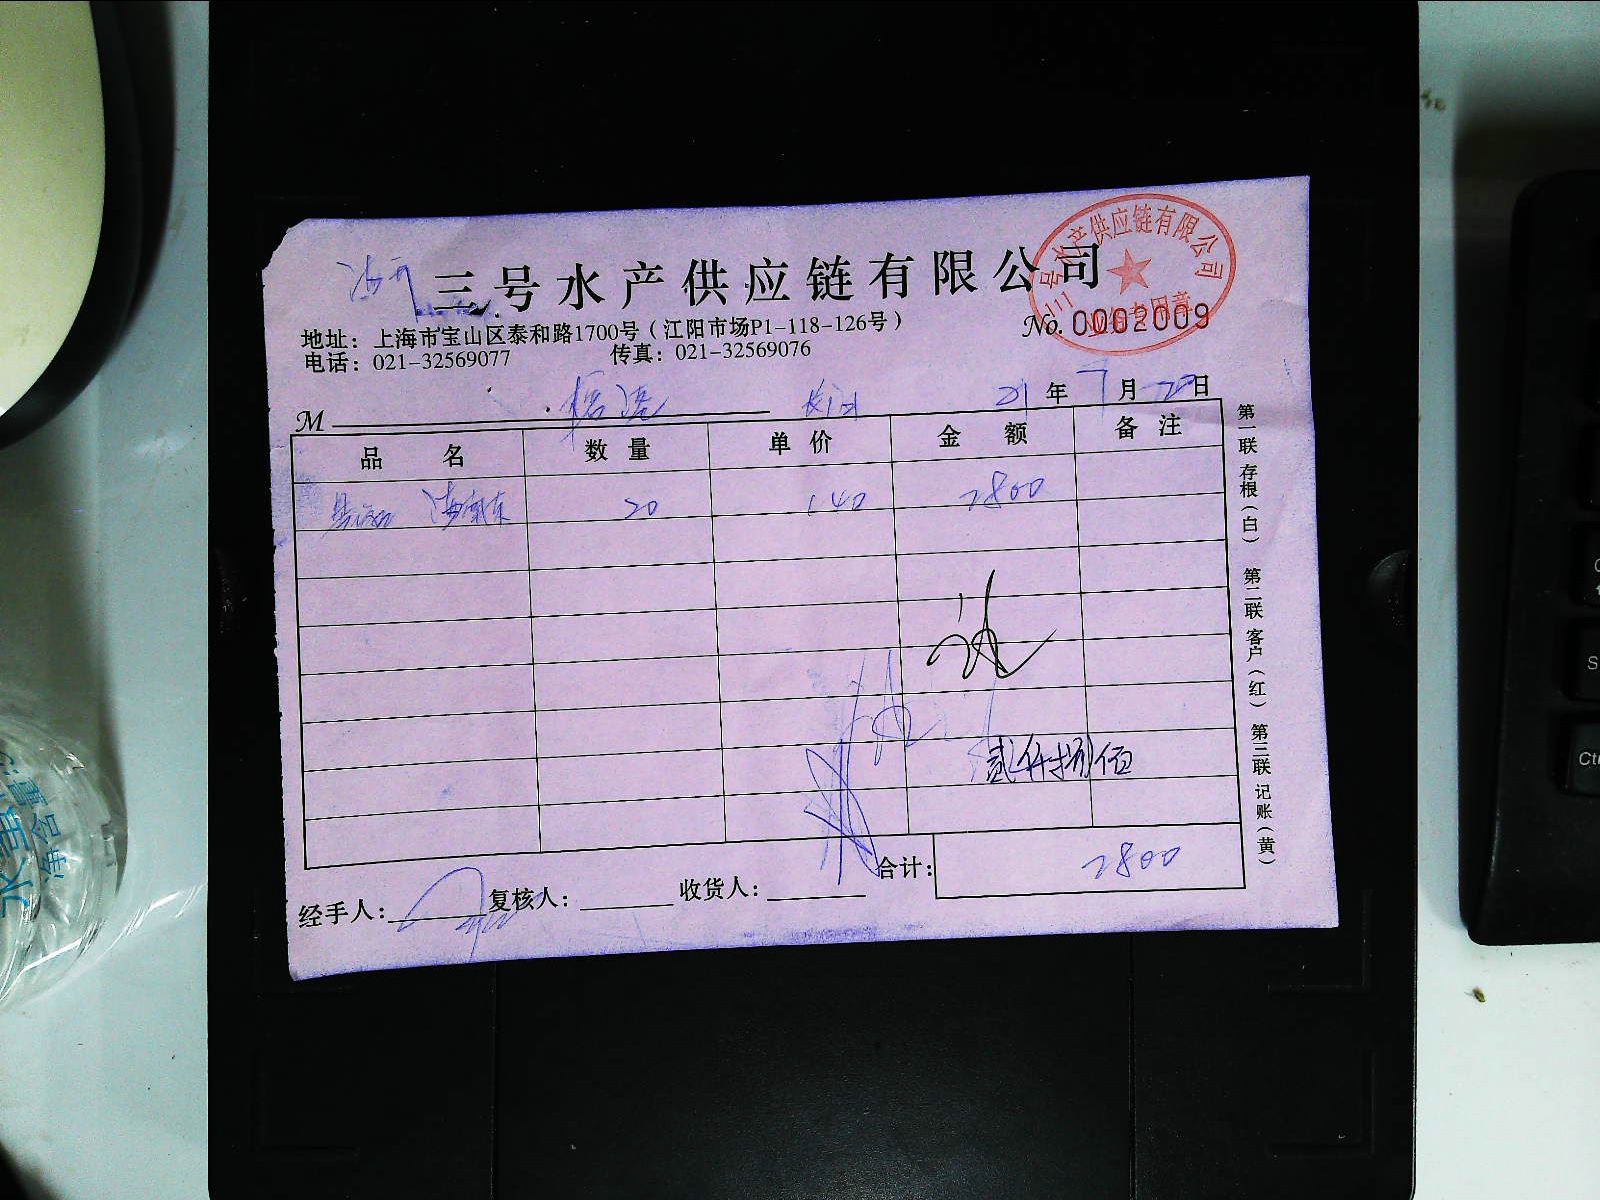 三号水产供应链有限公司
三号水产供应链有限公司
业务专用章
地址：上海市宝山区泰和路1700号（江阳市场P1-118-126号）
No. 0002009
电话：021-32569077 传真：021-32569076
M 21年7月28日
品名 数量 单价 金额 备注
20 140 2800
贰仟捌佰
合计： 2800
经手人： 复核人： 收货人：
第一联 存根（白） 第二联 客户（红） 第三联 记账（黄）
净含量